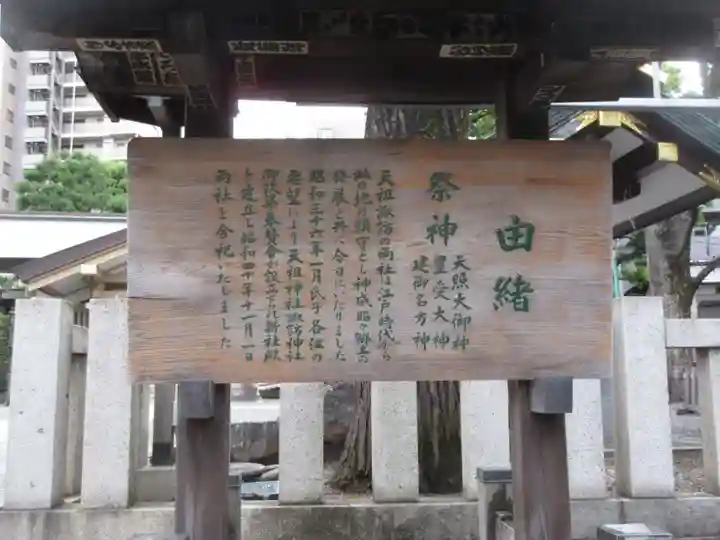 由緒
祭神
天照大御神
豊受大神
建御名方神
天祖諏訪の両社は江戸時代から
此の地の鎮守とし神威賜り郷土の
発展と共に今日にいたりました
昭和三十六年一月氏子各位の
要望により天祖神社諏訪神社
御改築奉賛会が設立され新社殿
を建立し昭和四十年十一月一日
両社を合祀いたしました